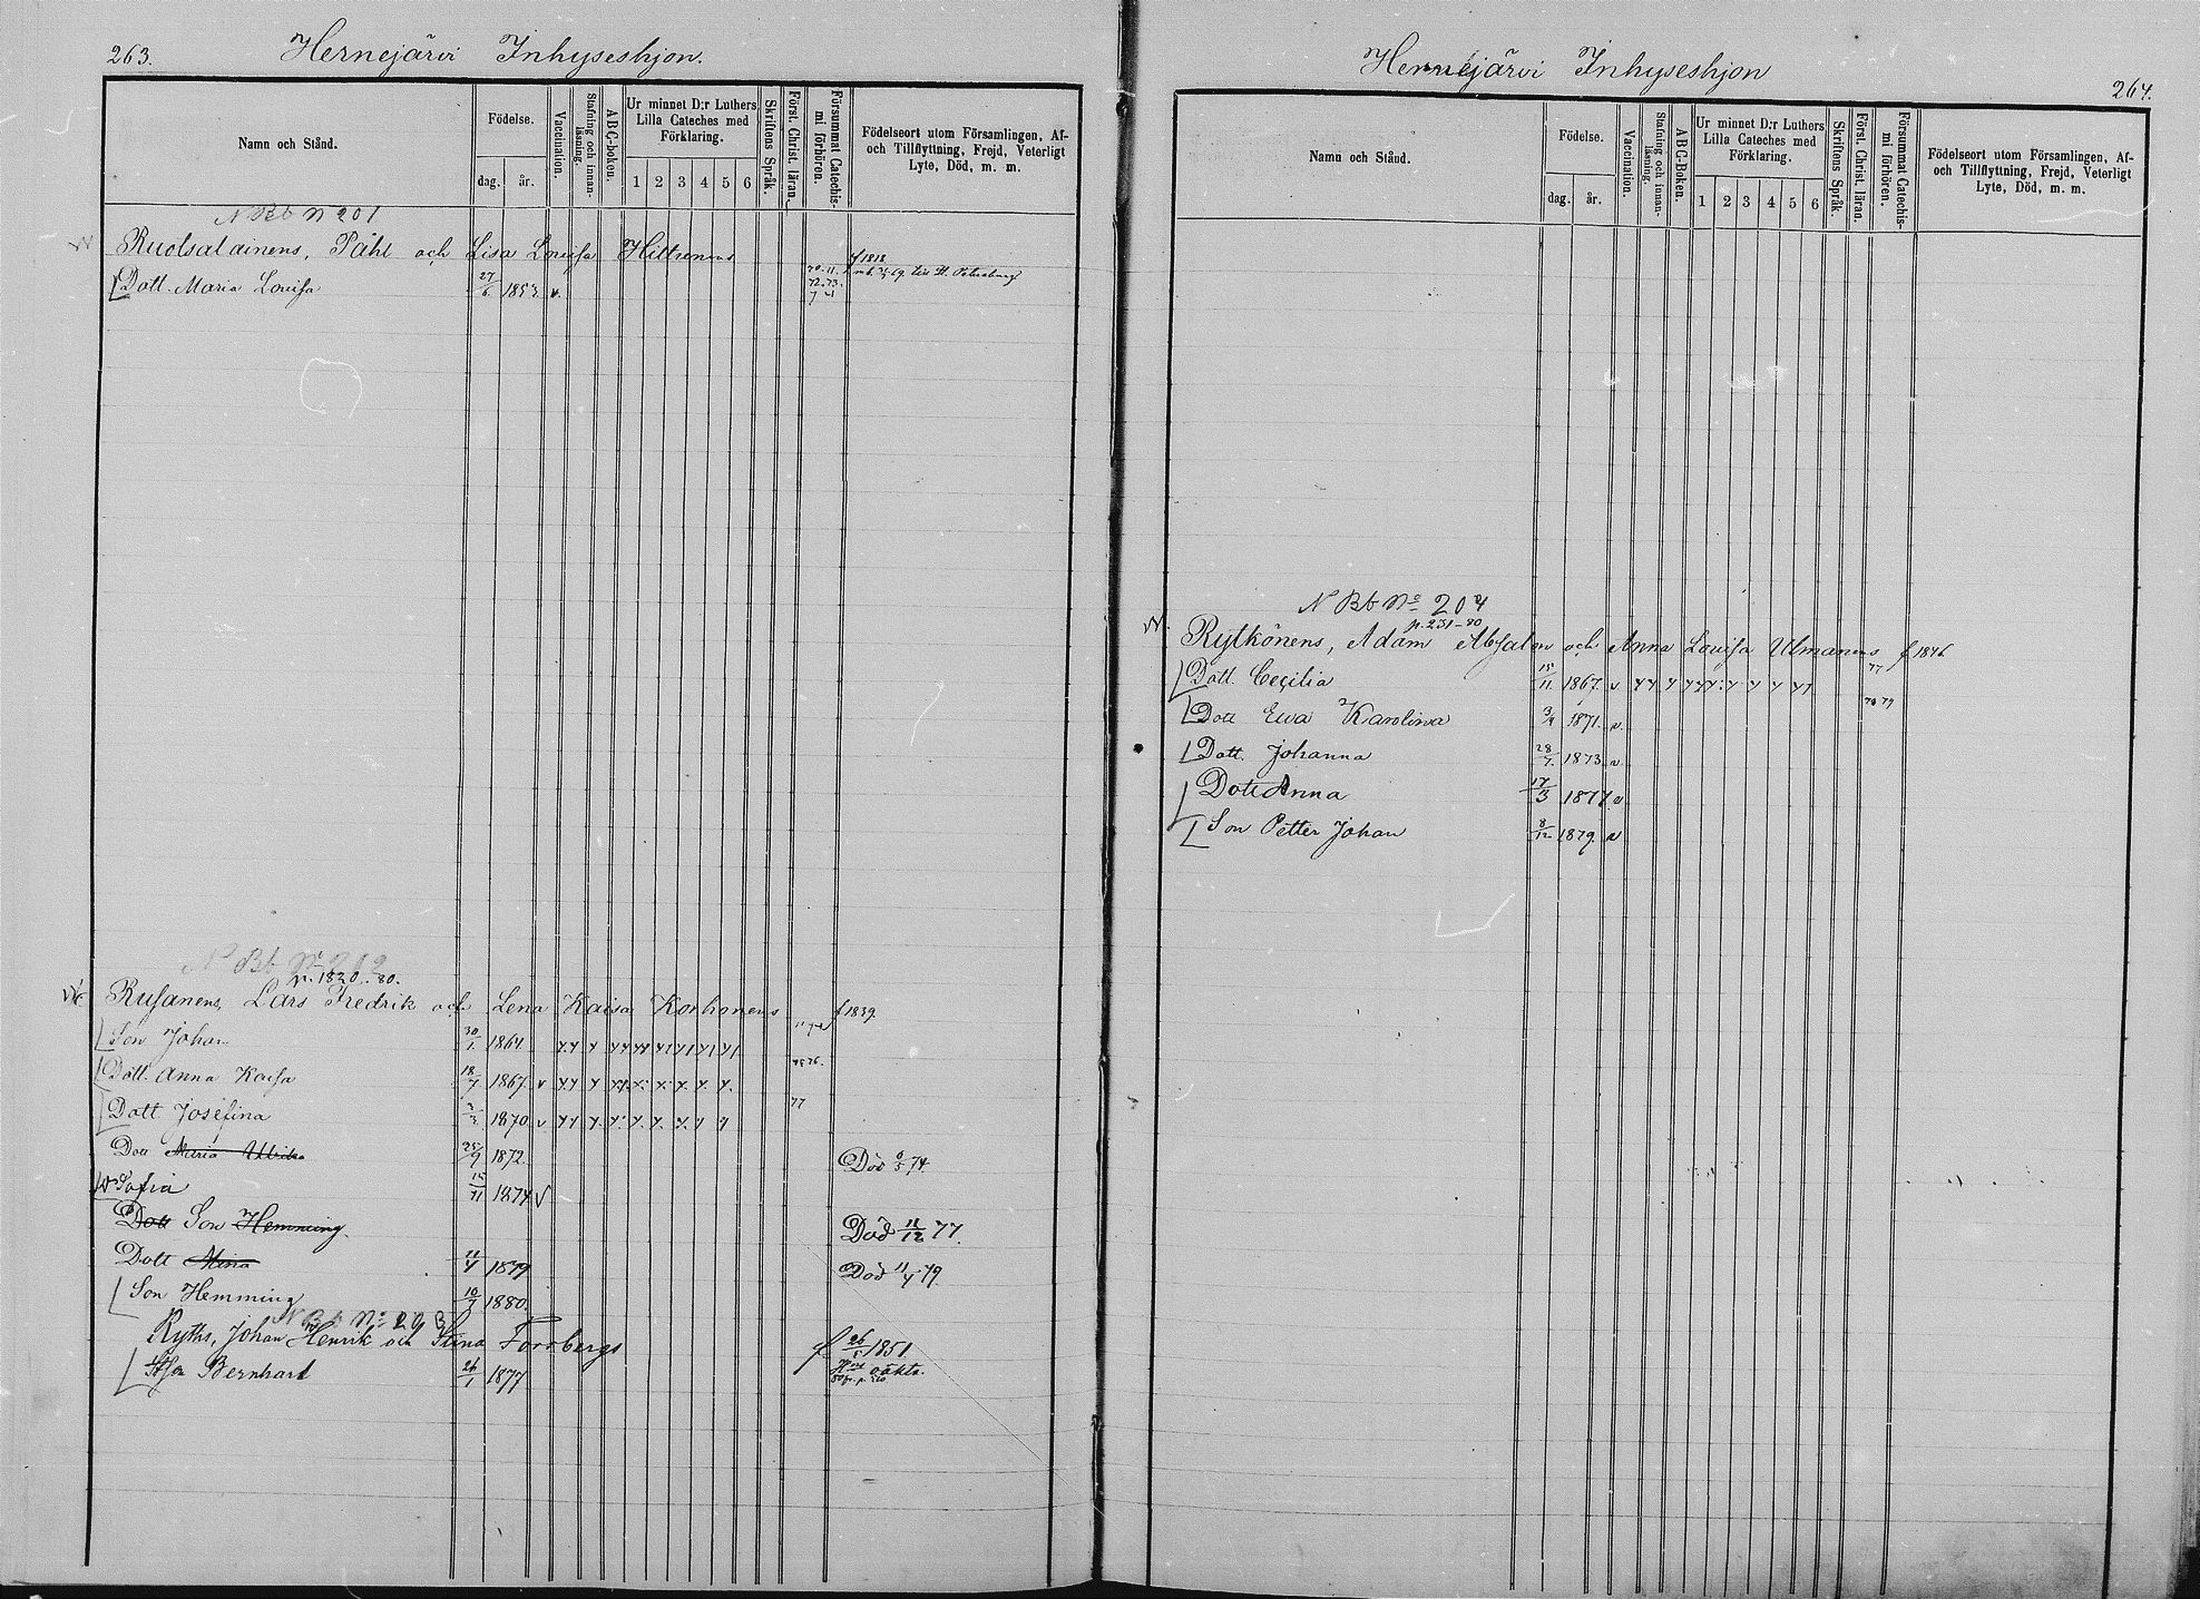 263.
Hernejärvi Inhyseshjon.
Namn och Stånd.
Födelse.
dag.
år.
Vaccination.
Stafning och innan-läsning.
ABC-boken.
Ur minnet D:r Luthers Lilla Cateches med Förklaring.
1 2 3 4 5 6
Skriftens Språk.
Först. Christ. läran.
Försummat Catechis-mi förhören.
Födelseort utom Församlingen, Af-
och Tillflyttning, Frejd, Veterligt
Lyte, Död, m. m.
N Bb N 201
Ruotsalainens, Påhl och Lisa Lovisa Hiltunens f 1818
Dott. Maria Lovisa 27/6 1853 v. 72.73. till St. Petersburg
N Bb No 202
p. 1820-80.
Rusanens, Lars Fredrik och Lena Kaisa Korhonens f 1839.
Son Johan 30/1 1864
Dott. Anna Kaisa 18/7 1867. v 75 76.
Dott Josefina 1870 v 77
Dott Maria Ulrika 25/9 1872. Död 74.
Sofia 1874 v
Dott Son Hemming. Död 11/12 77.
Dott Mina 11/4 1879 Död 11/4 79.
Son Hemming 10/7 1880.
N Bb No 203
Ryths, Johan Henrik och Stina Forsbergs f 26/5 1851.
Bernhard 26/1 1877 oäkta.
Hernejärvi Inhyseshjon
264.
Namn och Stånd.
Födelse.
dag.
år.
Vaccination.
Stafning och innan-läsning.
ABC-Boken.
Ur minnet D:r Luthers Lilla Cateches med Förklaring.
1 2 3 4 5 6
Skriftens Språk.
Först. Christ. läran.
Försummat Catechis-mi förhören.
Födelseort utom Församlingen, Af-
och Tillflyttning, Frejd, Veterligt
Lyte, Död, m. m.
N Bb No 204
p. 231-80
Rytkönens, Adam Absalon och Anna Lovisa Ulmanens f 1846
Dott. Cecilia 15/11 1867. v 77
Dott Ewa Karolina 3/4 1871. v. 78 79
Dott. Johanna 28/7. 1873. v.
Dott Anna 17/3 1877 v
Son Petter Johan 8/12 1879. v